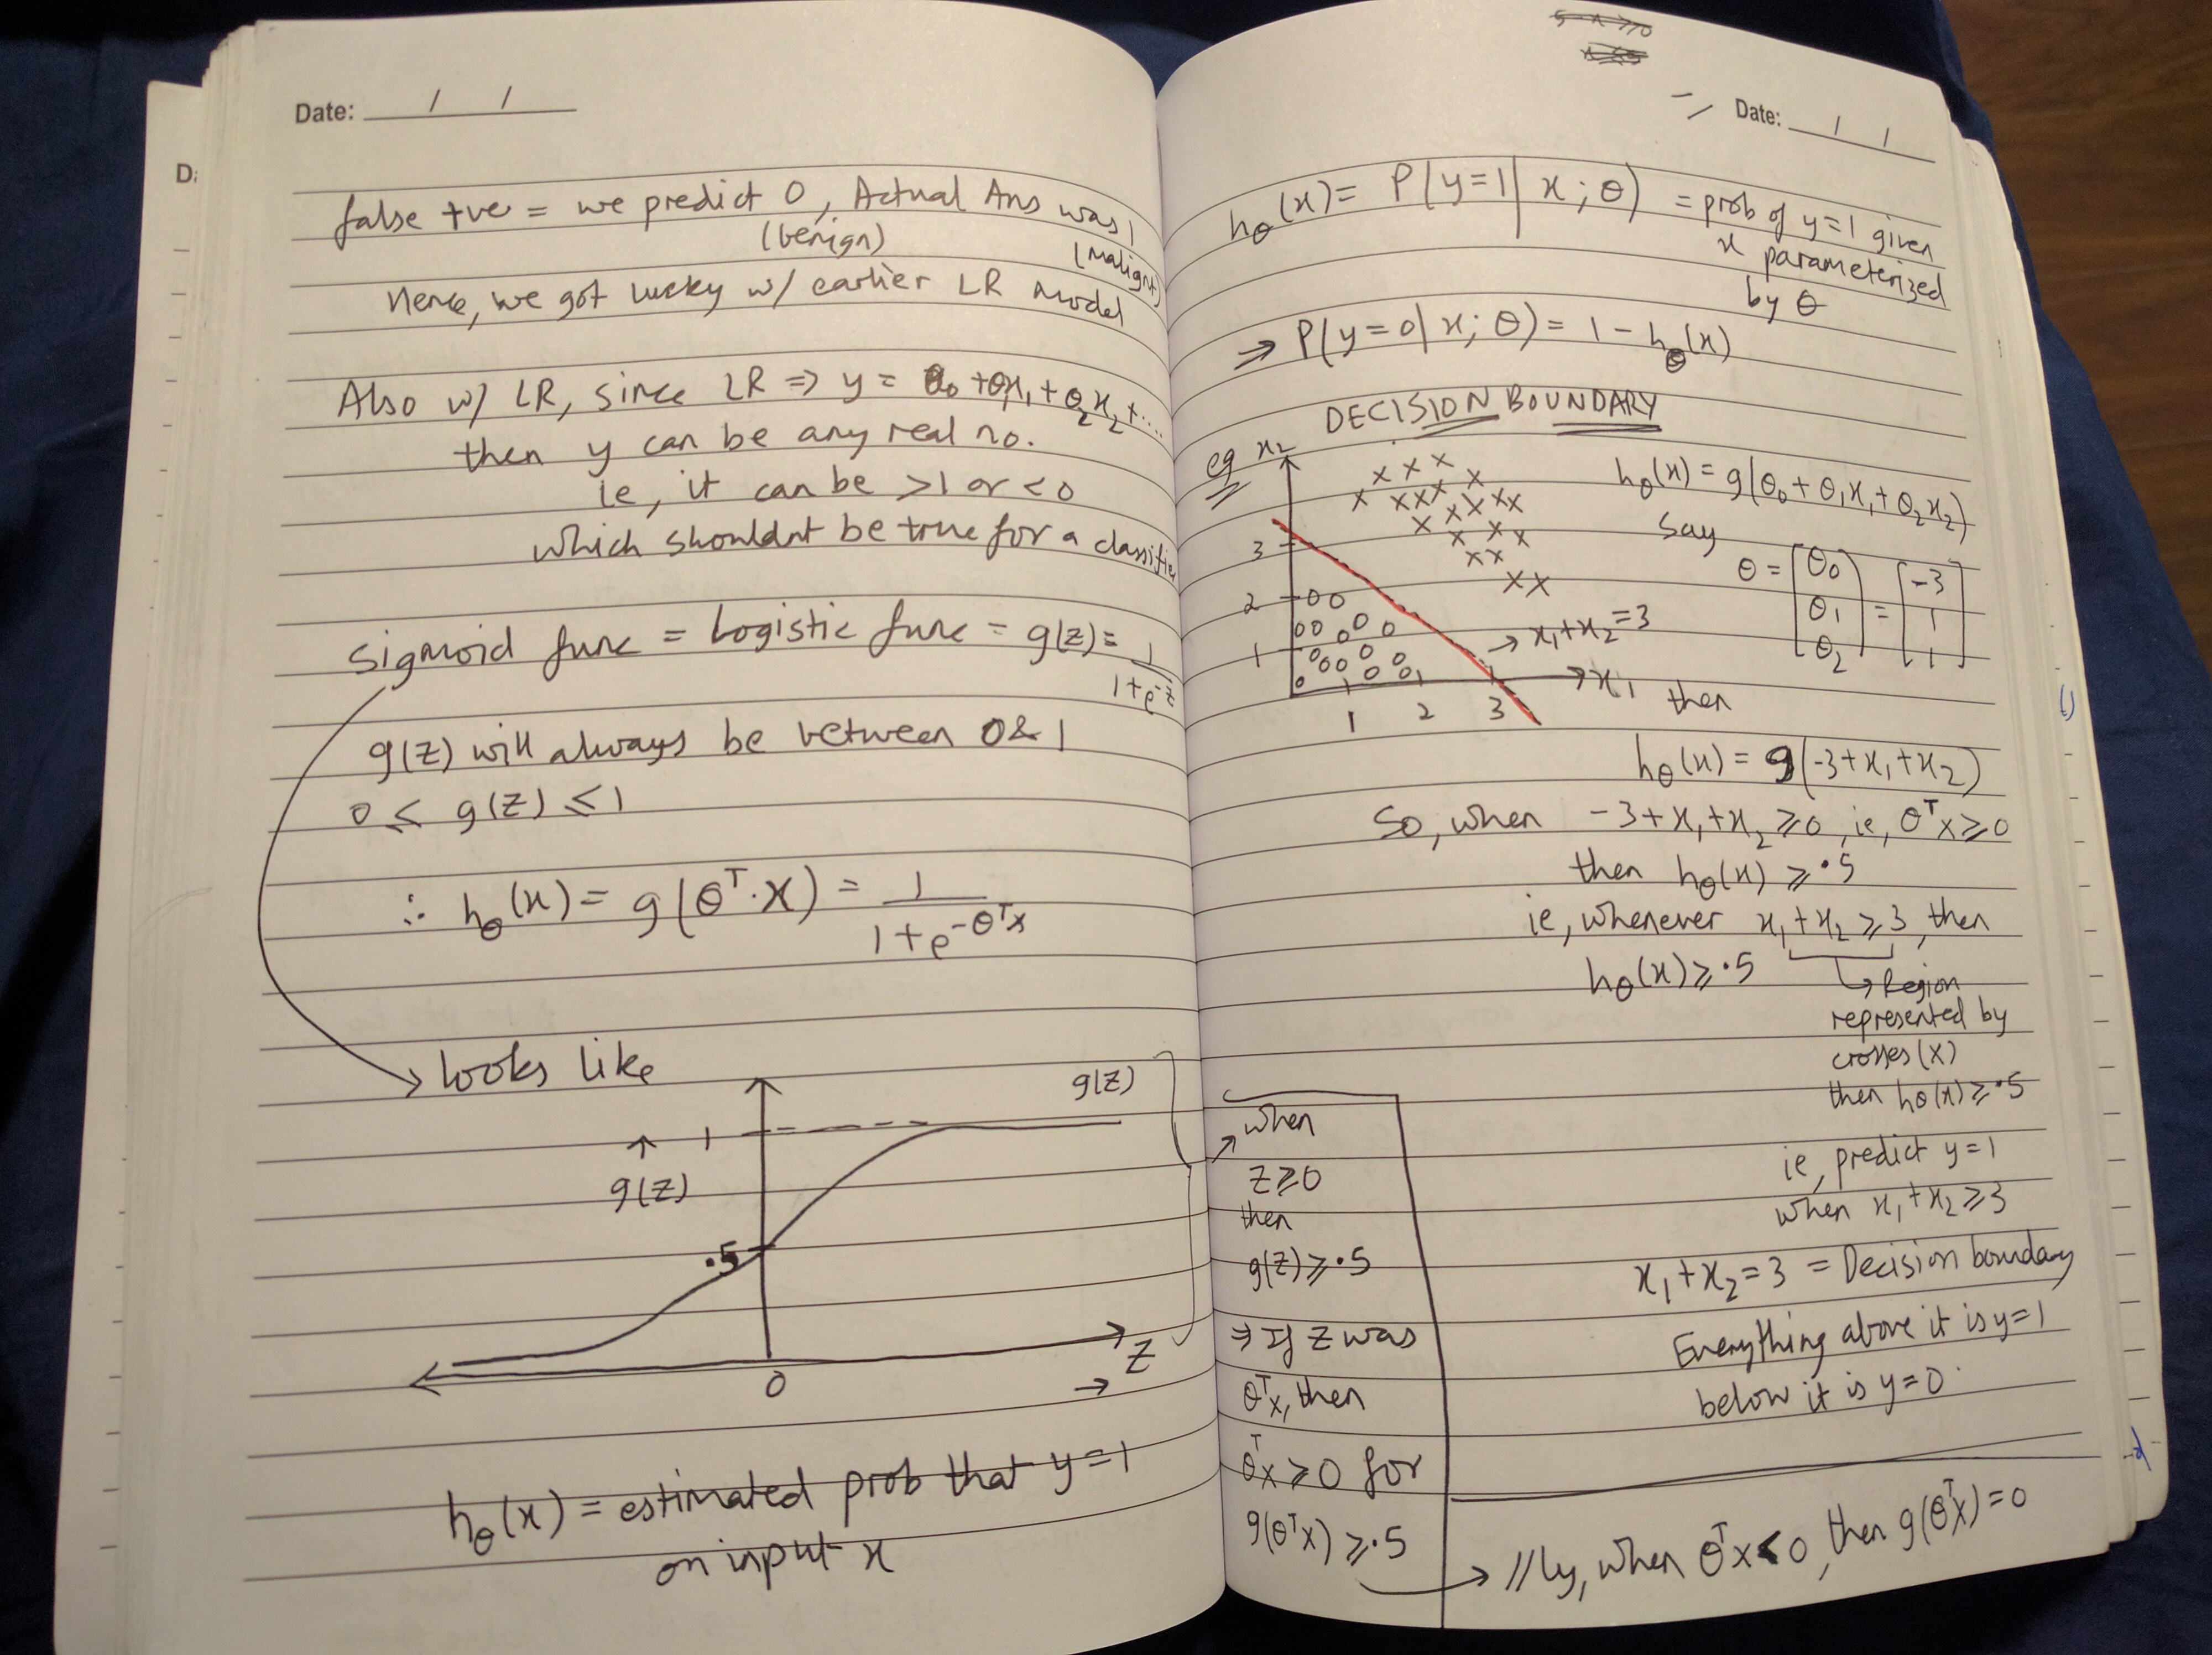 Date: / /
false +ve = we predict 0, Actual Ans was 1
(benign) (malignt)
Hence, we got lucky w/ earlier LR model
Also w/ LR, since LR ⇒ y = θ₀ + θ₁x₁ + θ₂x₂ + ...
then y can be any real no.
ie, it can be >1 or <0
which shouldnt be true for a classifier
Sigmoid func = Logistic func = g(z) = 1/(1+e^-z)
g(z) will always be between 0 & 1
0 ≤ g(z) ≤ 1
∴ hθ(x) = g(θᵀ·x) = 1/(1+e^-θᵀx)
looks like
g(z)
1
g(z)
.5
z
0
hθ(x) = estimated prob that y=1
on input x
Date: / /
hθ(x) = P(y=1|x;θ) = prob of y=1 given
x parameterized
by θ
⇒ P(y=0|x;θ) = 1 - hθ(x)
DECISION BOUNDARY
eg x₂
hθ(x) = g(θ₀ + θ₁x₁ + θ₂x₂)
say
θ = [θ₀ θ₁ θ₂] = [-3 1 1]
3
2
1
→ x₁+x₂=3
x₁
1 2 3
then
hθ(x) = g(-3+x₁+x₂)
So, when -3+x₁+x₂ ≥ 0, ie, θᵀx ≥ 0
then hθ(x) ≥ .5
ie, whenever x₁+x₂ ≥ 3, then
hθ(x) ≥ .5
↳ Region
represented by
crosses (x)
then hθ(x) ≥ .5
ie, predict y=1
when x₁+x₂ ≥ 3
x₁+x₂=3 = Decision boundary
Everything above it is y=1
below it is y=0.
when
z ≥ 0
then
g(z) ≥ .5
⇒ If z was
θᵀx, then
θᵀx ≥ 0 for
g(θᵀx) ≥ .5
→ //ly, when θᵀx < 0, then g(θᵀx) = 0